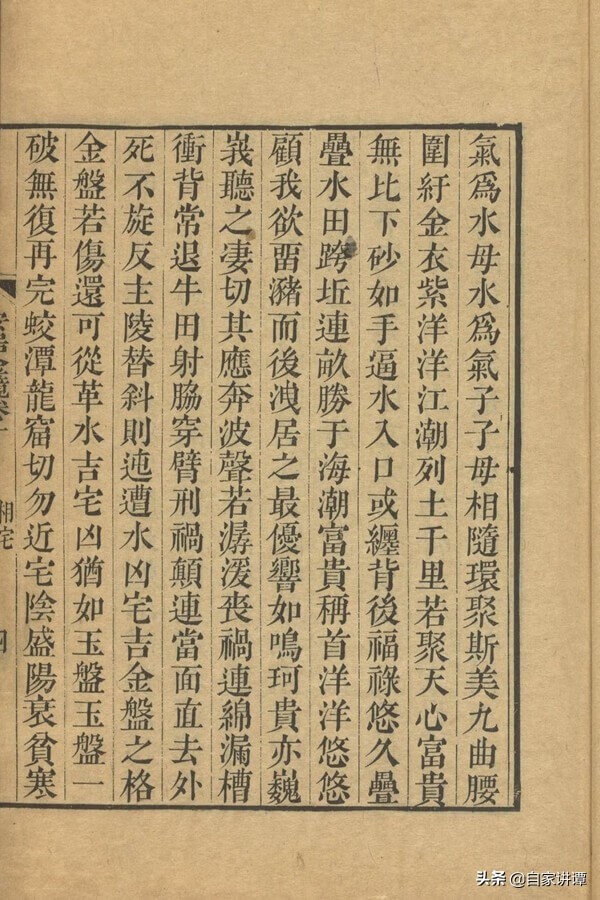 氣爲水母水爲氣子子母相隨環聚斯美九曲腰
圍紆金衣紫洋洋江潮列土千里若聚天心富貴
無比下砂如手逼水入口或纒背後福祿悠久疊
疊水田跨坵連畝勝于海潮富貴稱首洋洋悠悠
顧我欲畱瀦而後洩居之最優響如鳴珂貴亦巍
峩聽之凄切其應奔波聲若潺湲喪禍連綿漏槽
衝背常退牛田射脇穿臂刑禍顛連當面直去外
死不旋反主陵替斜則迍邅水凶宅吉金盤之格
金盤若傷還可從革水吉宅凶猶如玉盤玉盤一
破無復再完蛟潭龍窟切勿近宅陰盛陽衰貧寒
相宅
头条 @自家讲谭